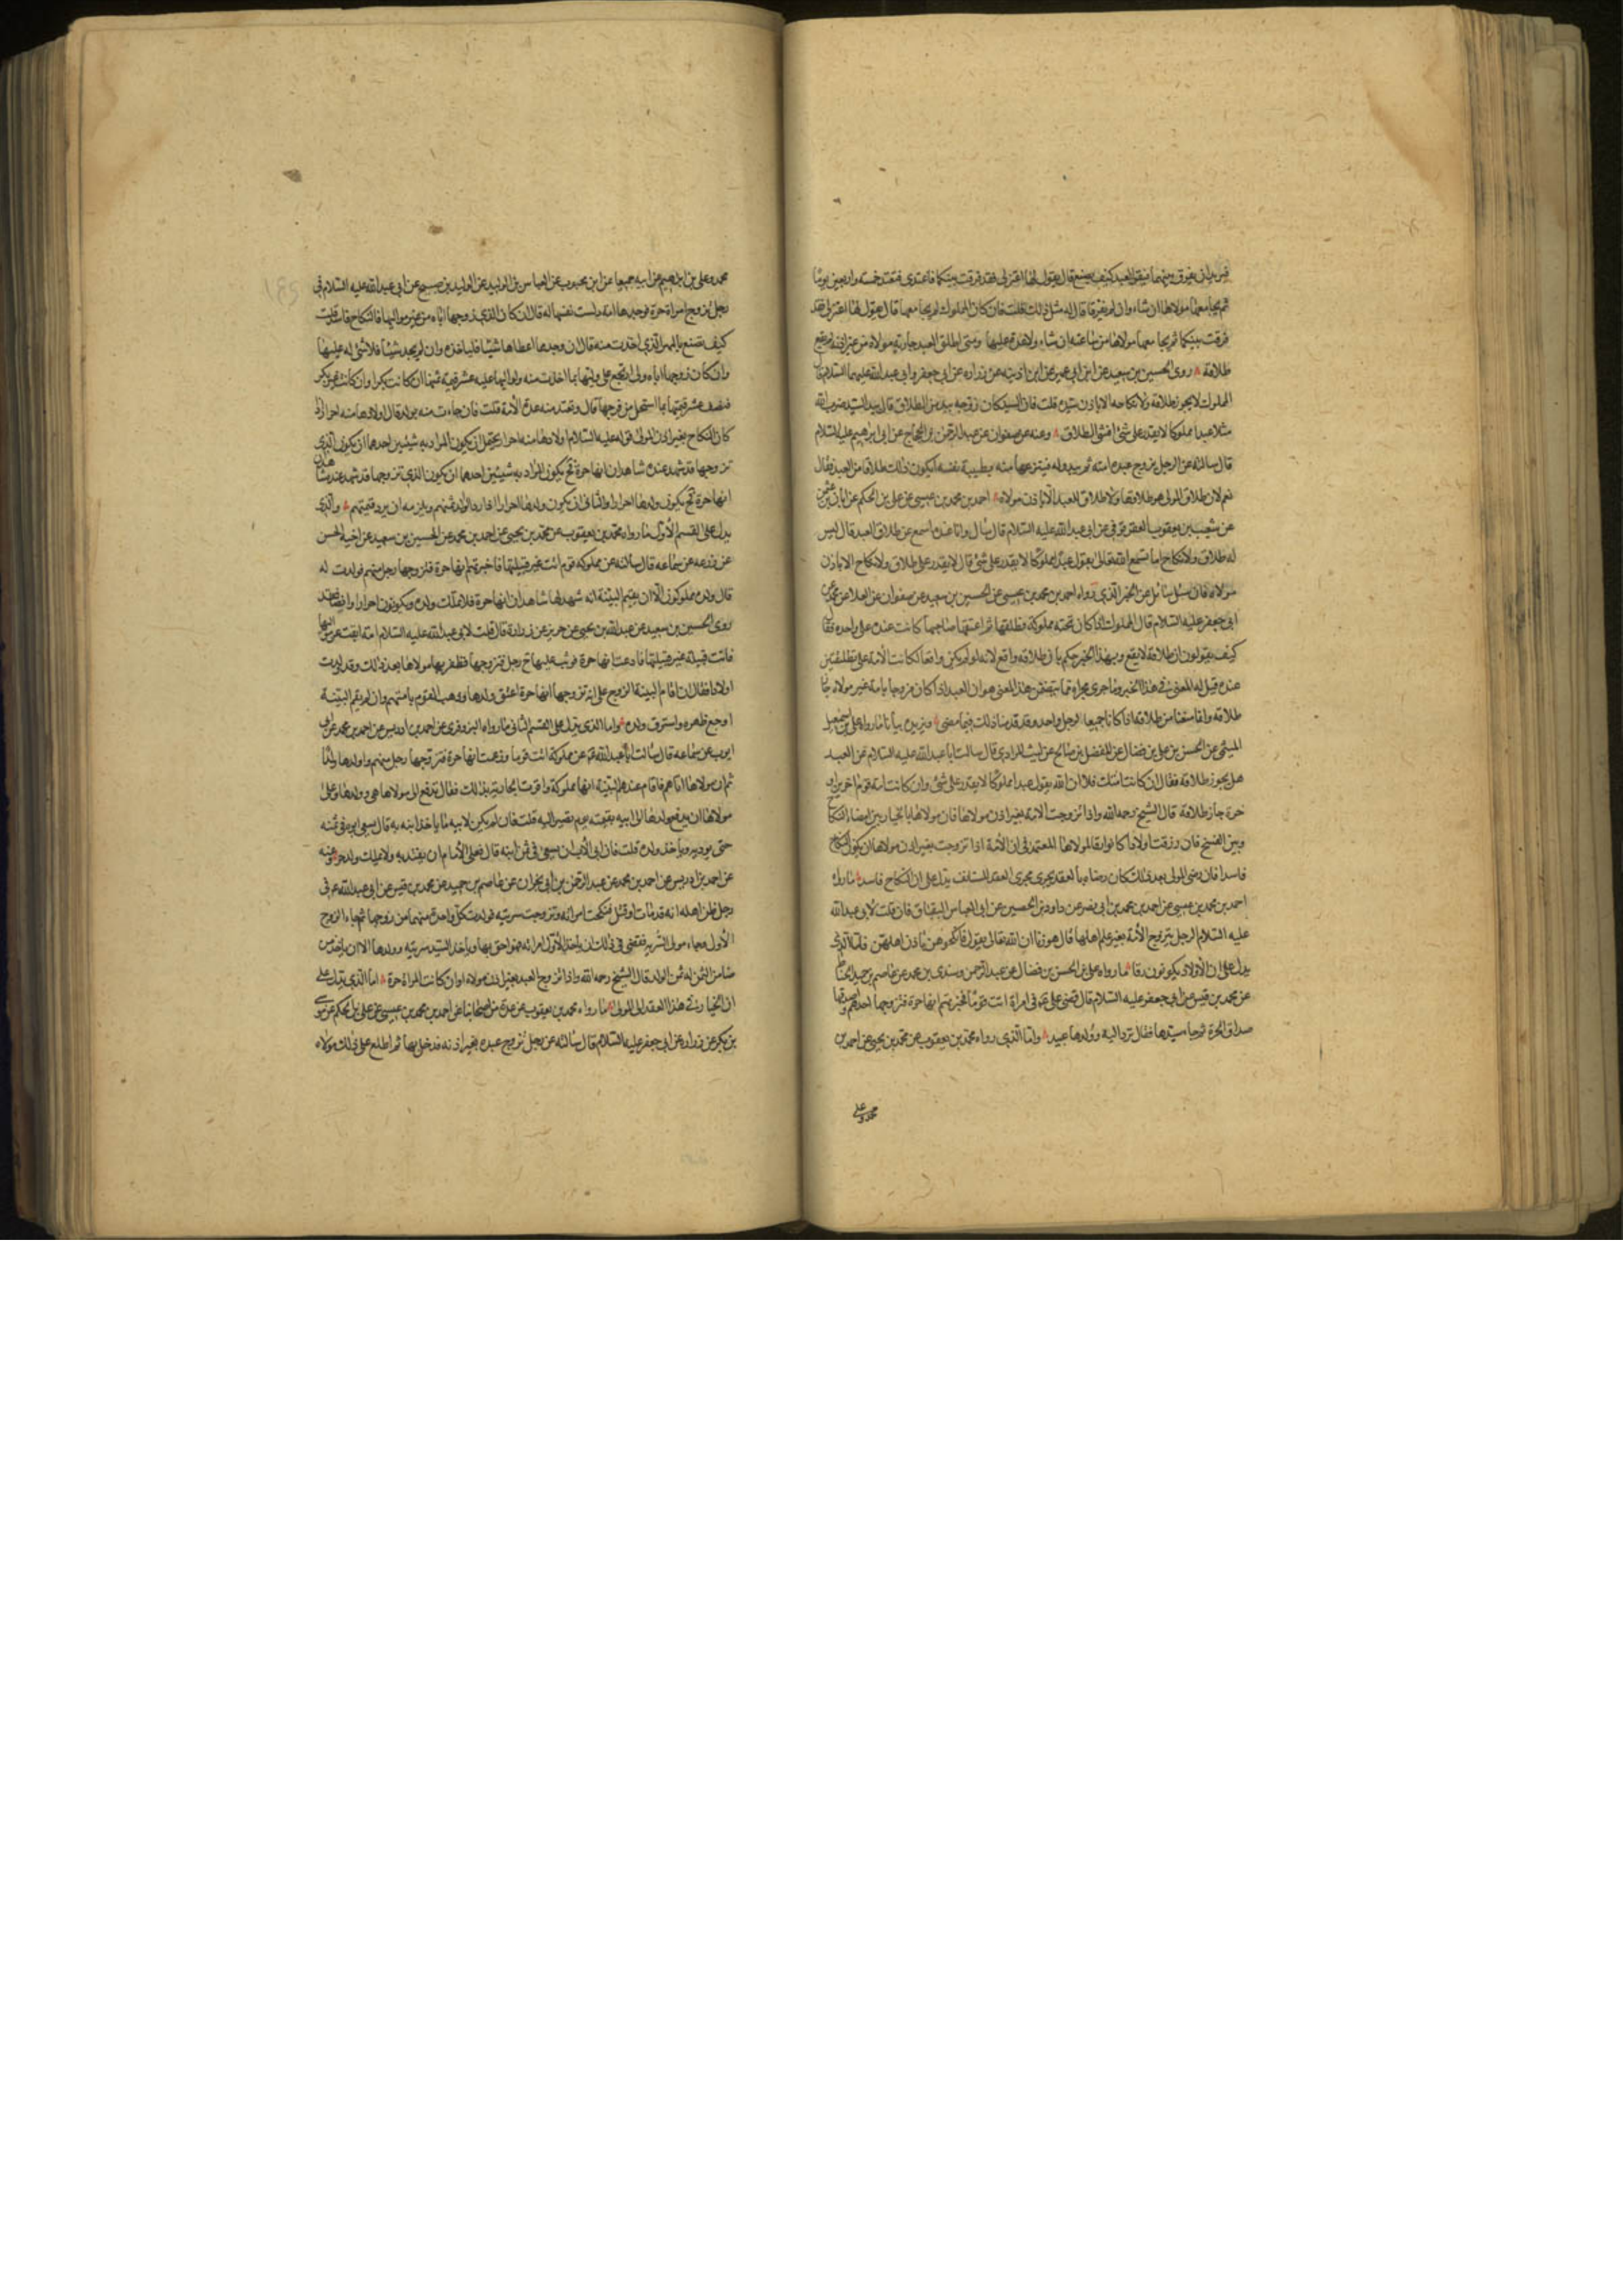 ثم يجامعها مولاها ان شاء وان لم يفرقا قال له مثل ذلك قلت فان كان المملوك لم يجامعها قال يقول لها اعتزلي فقد
فرقت بينكما ثم يجامعها مولاها من ساعته ان شاء ولا عدة عليها ومتى اطلق العبد جارية مولاه من غير اذنه لم يقع
طلاقه روى الحسين بن سعيد عن ابن ابي عمير عن ابن اذينه عن زراره عن ابي جعفر وابي عبد الله عليهما السلام قال
المملوك لا يجوز طلاقه ولا نكاحه الا باذن سيده قلت فان السيد كان زوجه بيد من الطلاق قال بيد السيد ضرب الله
مثلا عبدا مملوكا لا يقدر على شئ افشئ الطلاق وعنه عن صفوان عن عبد الرحمن بن الحجاج عن ابي ابرهيم عليه السلام
قال سالته عن الرجل يزوج عبده امته ثم يبدو له فينتزعها منه بطيبة نفسه ايكون ذلك طلاقا من العبد فقال
نعم لان طلاق المولى هو طلاقها ولا طلاق للعبد الا باذن مولاه احمد بن محمد بن عيسى عن علي بن الحكم عن ابان بن عثمن
عن شعيب بن يعقوب العقرقوفي عن ابي عبد الله عليه السلام قال سئل وانا عنده اسمع عن طلاق العبد قال ليس
له طلاق ولا نكاح اما تسمع الله تعالى يقول عبدا مملوكا لا يقدر على شئ قال لا يقدر على طلاق ولا نكاح الا باذن
مولاه فان سئل سائل عن الخبر الذي رواه احمد بن محمد بن عيسى عن الحسين بن سعيد عن صفوان عن العلا عن محمد عن
ابي جعفر عليه السلام قال المملوك اذا كان تحته مملوكة فطلقها ثم اعتقها صاحبها كانت عنده على واحده فقال
كيف تقولون ان طلاقه لا يقع وبهذا الخبر حكم بان طلاقه واقع لانه لو لم يكن واقعا لكانت الامة على تطليقتين
عنده قيل له المعنى في هذا الخبر وما جرى مجراه مما يتضمن هذا المعنى هو ان العبد اذا كان مزوجا بامة غير مولاه جاز
طلاقه وانما منعنا من طلاقه اذا كانا جميعا لرجل واحد وقد قدمنا ذلك فيما مضى ويزيده بيانا ما رواه علي بن اسمعيل
الميثمي عن الحسن بن علي بن فضال عن المفضل بن صالح عن ليث المرادي قال سالت ابا عبد الله عليه السلام عن العبد
هل يجوز طلاقه فقال ان كانت امتك فلا ان الله يقول عبدا مملوكا لا يقدر على شئ وان كانت امة قوم اخرين او
حرة جاز طلاقه قال الشيخ رحمه الله واذا تزوجت الامة بغير اذن مولاها فان مولاها بالخيار بين امضاء النكاح
وبين الفسخ فان رزقت اولادا كانوا رقا لمولاها المعتمد في ان الأمة اذا تزوجت بغير اذن مولاها ان يكون النكاح
فاسدا فان رضى المولى بعد ذلك كان رضاه بالعقد يجرى مجرى العقد المستانف يدل على ان النكاح فاسد ما رواه
احمد بن محمد بن عيسى عن احمد بن محمد بن ابي نصر عن داود بن الحصين عن ابي العباس البقباق قال قلت لابي عبد الله
عليه السلام الرجل يتزوج الأمة بغير علم اهلها قال هو زنا ان الله تعالى يقول فانكحوهن باذن اهلهن فاما الذي
يدل على ان الاولاد يكونون رقا ما رواه علي بن الحسن بن فضال عن عبد الرحمن وسندي بن محمد عن عاصم بن حميد الحناط
عن محمد بن قيس عن ابي جعفر عليه السلام قال قضى علي ع في امراة اتت قوما فخبرتهم انها حرة فتزوجها احدهم واصدقها
صداق الحرة ثم جا سيدها فقال ترد اليه وولدها عبيد واما الذي رواه محمد بن يعقوب عن محمد بن يحيى عن احمد بن
محمد وعلي
محمد وعلي بن ابرهيم عن ابيه جميعا عن ابن محبوب عن العباس بن الوليد عن الوليد بن صبيح عن ابي عبد الله عليه السلام في
رجل تزوج امراة حرة فوجدها امة دلست نفسها له قال ان كان الذي زوجها اياه من غير مواليها فالنكاح فاسد قلت
كيف تصنع بالمهر الذي اخذت منه قال ان وجد مما اعطاها شيئا فلياخذه وان لم يجد شيئا فلا شئ له عليها
وان كان زوجها اياه ولي ارتجع على وليها بما اخذت منه ولمواليها عليه عشر قيمة ثمنها ان كانت بكرا وان كانت غير بكر
فنصف عشر قيمتها بما استحل من فرجها قال وتعتد منه عدة الأمة قلت فان جاءت منه بولد قال اولادها منه احرار اذا
كان النكاح بغير اذن المولى قوله عليه السلام اولادها منه احرار يحتمل ان يكون المراد به شيئين احدهما ان يكون الذي
تزوجها قد شهد عنده شاهدان انها حرة فح يكون المراد به شيئين احدهما ان يكون الذي تزوجها قد شهد عنده شاهدان
انها حرة فح يكون ولدها احرارا والثاني ان يكون ولدها احرارا اذا رد الوالد ثمنهم ويلزمه ان يرد قيمتهم والذي
يدل على القسم الأول ما رواه محمد بن يعقوب عن محمد بن يحيى عن احمد بن محمد عن الحسين بن سعيد عن اخيه الحسن
عن زرعه عن سماعه قال سالته عن مملوكه قوم اتت غير قبيلتها فاخبرتهم انها حرة فتزوجها رجل منهم فولدت له
قال ولده مملوكون الا ان يقيم البينة انه شهد لها شاهدان انها حرة فلا تملك ولده ويكونون احرارا وايضا فقد
روى الحسين بن سعيد عن عبد الله بن يحيى عن حريز عن زرارة قال قلت لابي عبد الله عليه السلام امة ابقت من مواليها
فاتت قبيلة غير قبيلتها فادعت انها حرة فوثب عليها ح رجل فتزوجها فظفر بها مولاها بعد ذلك وقد ولدت
اولادا فقال ان اقام البينة الزوج على انه تزوجها انها حرة اعتق ولدها وذهب القوم بامتهم وان لم يقم البينة
اوجع ظهره واسترق ولده واما الذي يدل على القسم الثاني ما رواه البزوفري عن احمد بن ادريس عن احمد بن محمد عن ابي
ايوب عن سماعه قال سالت ابا عبد الله ع عن مملوكة اتت قوما وزعمت انها حرة فتزوجها رجل منهم واولدها ولدا
ثم ان مولاها اتاهم فاقام عندهم البينة انها مملوكة واقرت الجارية بذلك فقال تدفع الى مولاها هي وولدها وعلى
مولاها ان يدفع ولدها الى ابيه بقيمته يوم يصير اليه قلت فان لم يكن لابيه ما ياخذ ابنه به قال يسعى ابوه في ثمنه
حتى يوديه وياخذ ولده قلت فان ابى الأب ان يسعى في ثمن ابنه قال فعلى الامام ان يفتديه ولا يملك ولد حر وعنه
عن احمد بن ادريس عن احمد بن محمد عن عبد الرحمن بن ابي نجران عن عاصم بن حميد عن محمد بن قيس عن ابي عبد الله ع في
رجل ظن اهله انه قد مات او قتل فنكحت امراته وتزوجت سريته فولدت كل واحدة منهما من زوجها ثم جاء الزوج
الأول وجاء مولى السرية فقضى في ذلك ان ياخذ الأول امراته فهو احق بها وياخذ السيد سريته وولدها الا ان ياخذ من
رضا من الثمن له ثمن الولد قال الشيخ رحمه الله واذا تزوج العبد بغير اذن مولاه اوان كانت المراة حرة اما الذي يدل على
ان الخيار في هذا العقد الى المولى ما رواه محمد بن يعقوب عن عدة من اصحابنا عن احمد بن محمد بن عيسى عن علي بن الحكم عن موسى
بن بكر عن زراره عن ابي جعفر عليه السلام قال سالته عن رجل تزوج عبده بغير اذنه فدخل بها ثم اطلع على ذلك مولاه